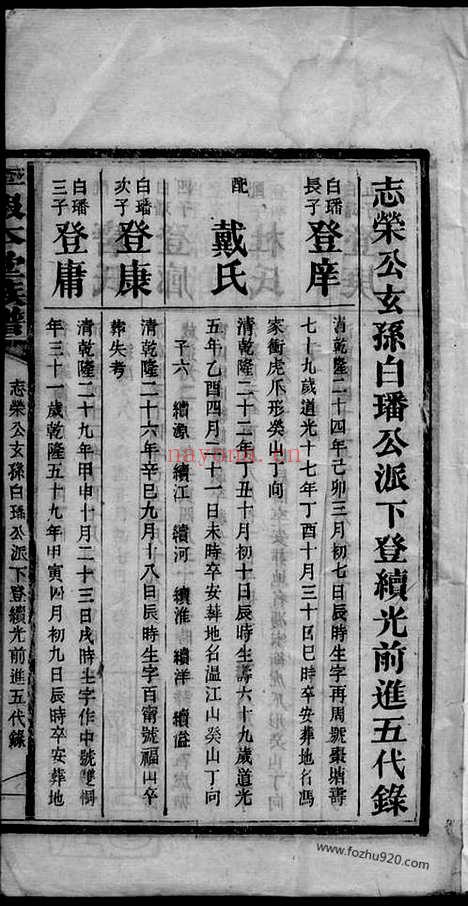 志榮公玄孫白璠公派下登續光前進五代錄
白璠
長子
登庠
清乾隆二十四年己卯三月初七日辰時生字再周號棗塘壽
七十九歲道光十七年丁酉十月三十日巳時卒安葬地名馮
家衝虎爪形癸山丁向
配
戴氏
清乾隆二十二年丁丑十月初十日辰時生壽六十九歲道光
五年乙酉四月二十一日未時卒安葬地名温江山癸山丁向
子六 續源 續江 續河 續淮 續洋 續溢
白璠
次子
登康
清乾隆二十六年辛巳九月十八日辰時生字百甯號福山卒
葬失考
白璠
三子
登庸
清乾隆二十九年甲申十月二十三日戌時生字作中號雙桐
年三十一歲乾隆五十九年甲寅四月初九日辰時卒安葬地
志榮公玄孫白璠公派下登續光前進五代錄
nayona.cn
www.fozhu920.com